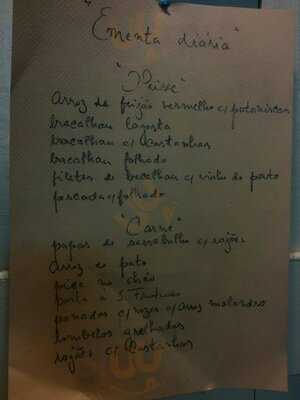 "Ementa diária"
"Peixe"
Arroz de feijão vermelho c/ pataniscas
bacalhau lagosta
bacalhau c/ Castanhas
bacalhau folhado
filetes de bacalhau c/ vinho do porto
pescada c/ folhado
"Carne"
papas de sarrabulho c/ rojões
Arroz de pato
pica no chão
posta à
panados c/ arroz malandro
lombelos grelhados
rojões c/ Castanhas